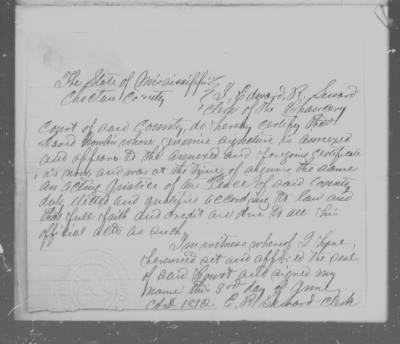 The State of Mississippi
Choctaw County
I, Edward R. Seward
Clerk of the Chancery
Court of said County, do hereby certify that
David whose genuine signature is annexed
and appears to the annexed and foregoing certificate
is now and was at the time of signing the same
an acting Justice of the Peace of said County
duly elected and qualified according to law and
that full faith and credit are due to all his
official acts as such
In witness whereof I have
hereunto set and affixed the seal
of said Court and signed my
name this 3rd day of June
AD 1878. E. R. Seward Clerk